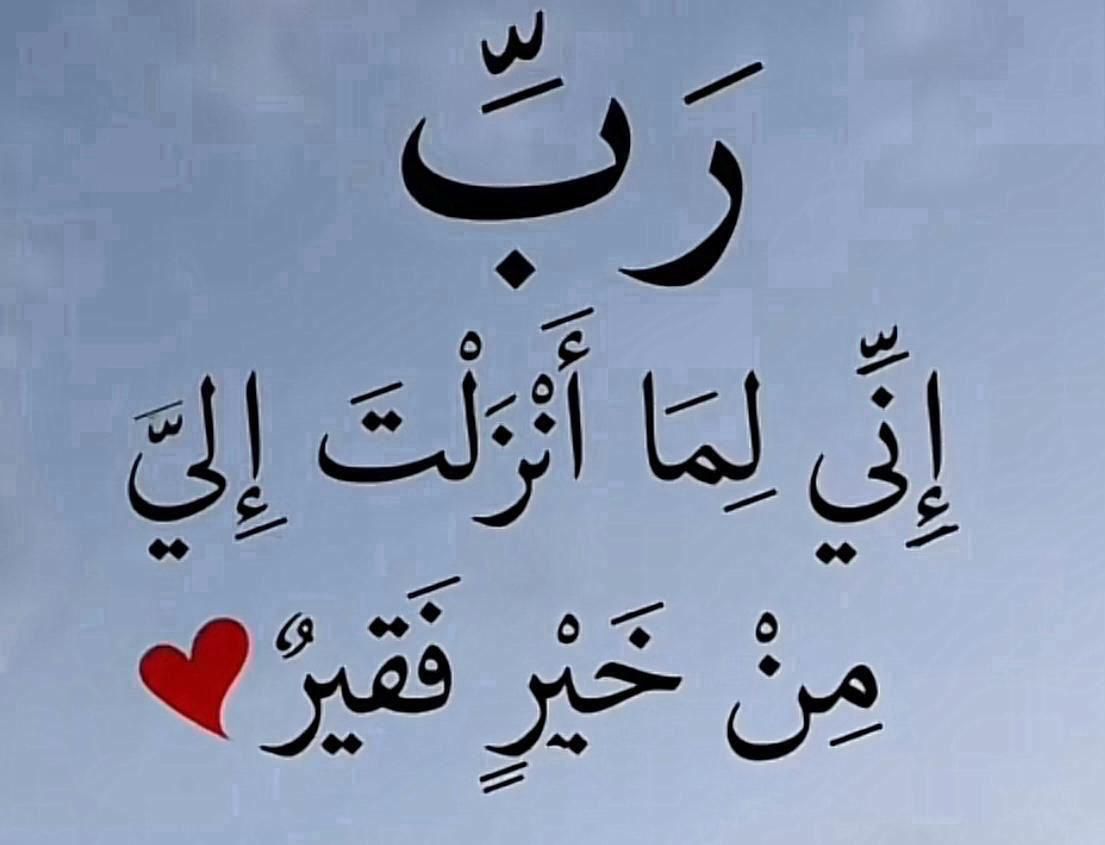 رَبِّ
إِنِّي لِمَا أَنْزَلْتَ إِليَّ
مِنْ خَيْرٍ فَقيرٌ ❤